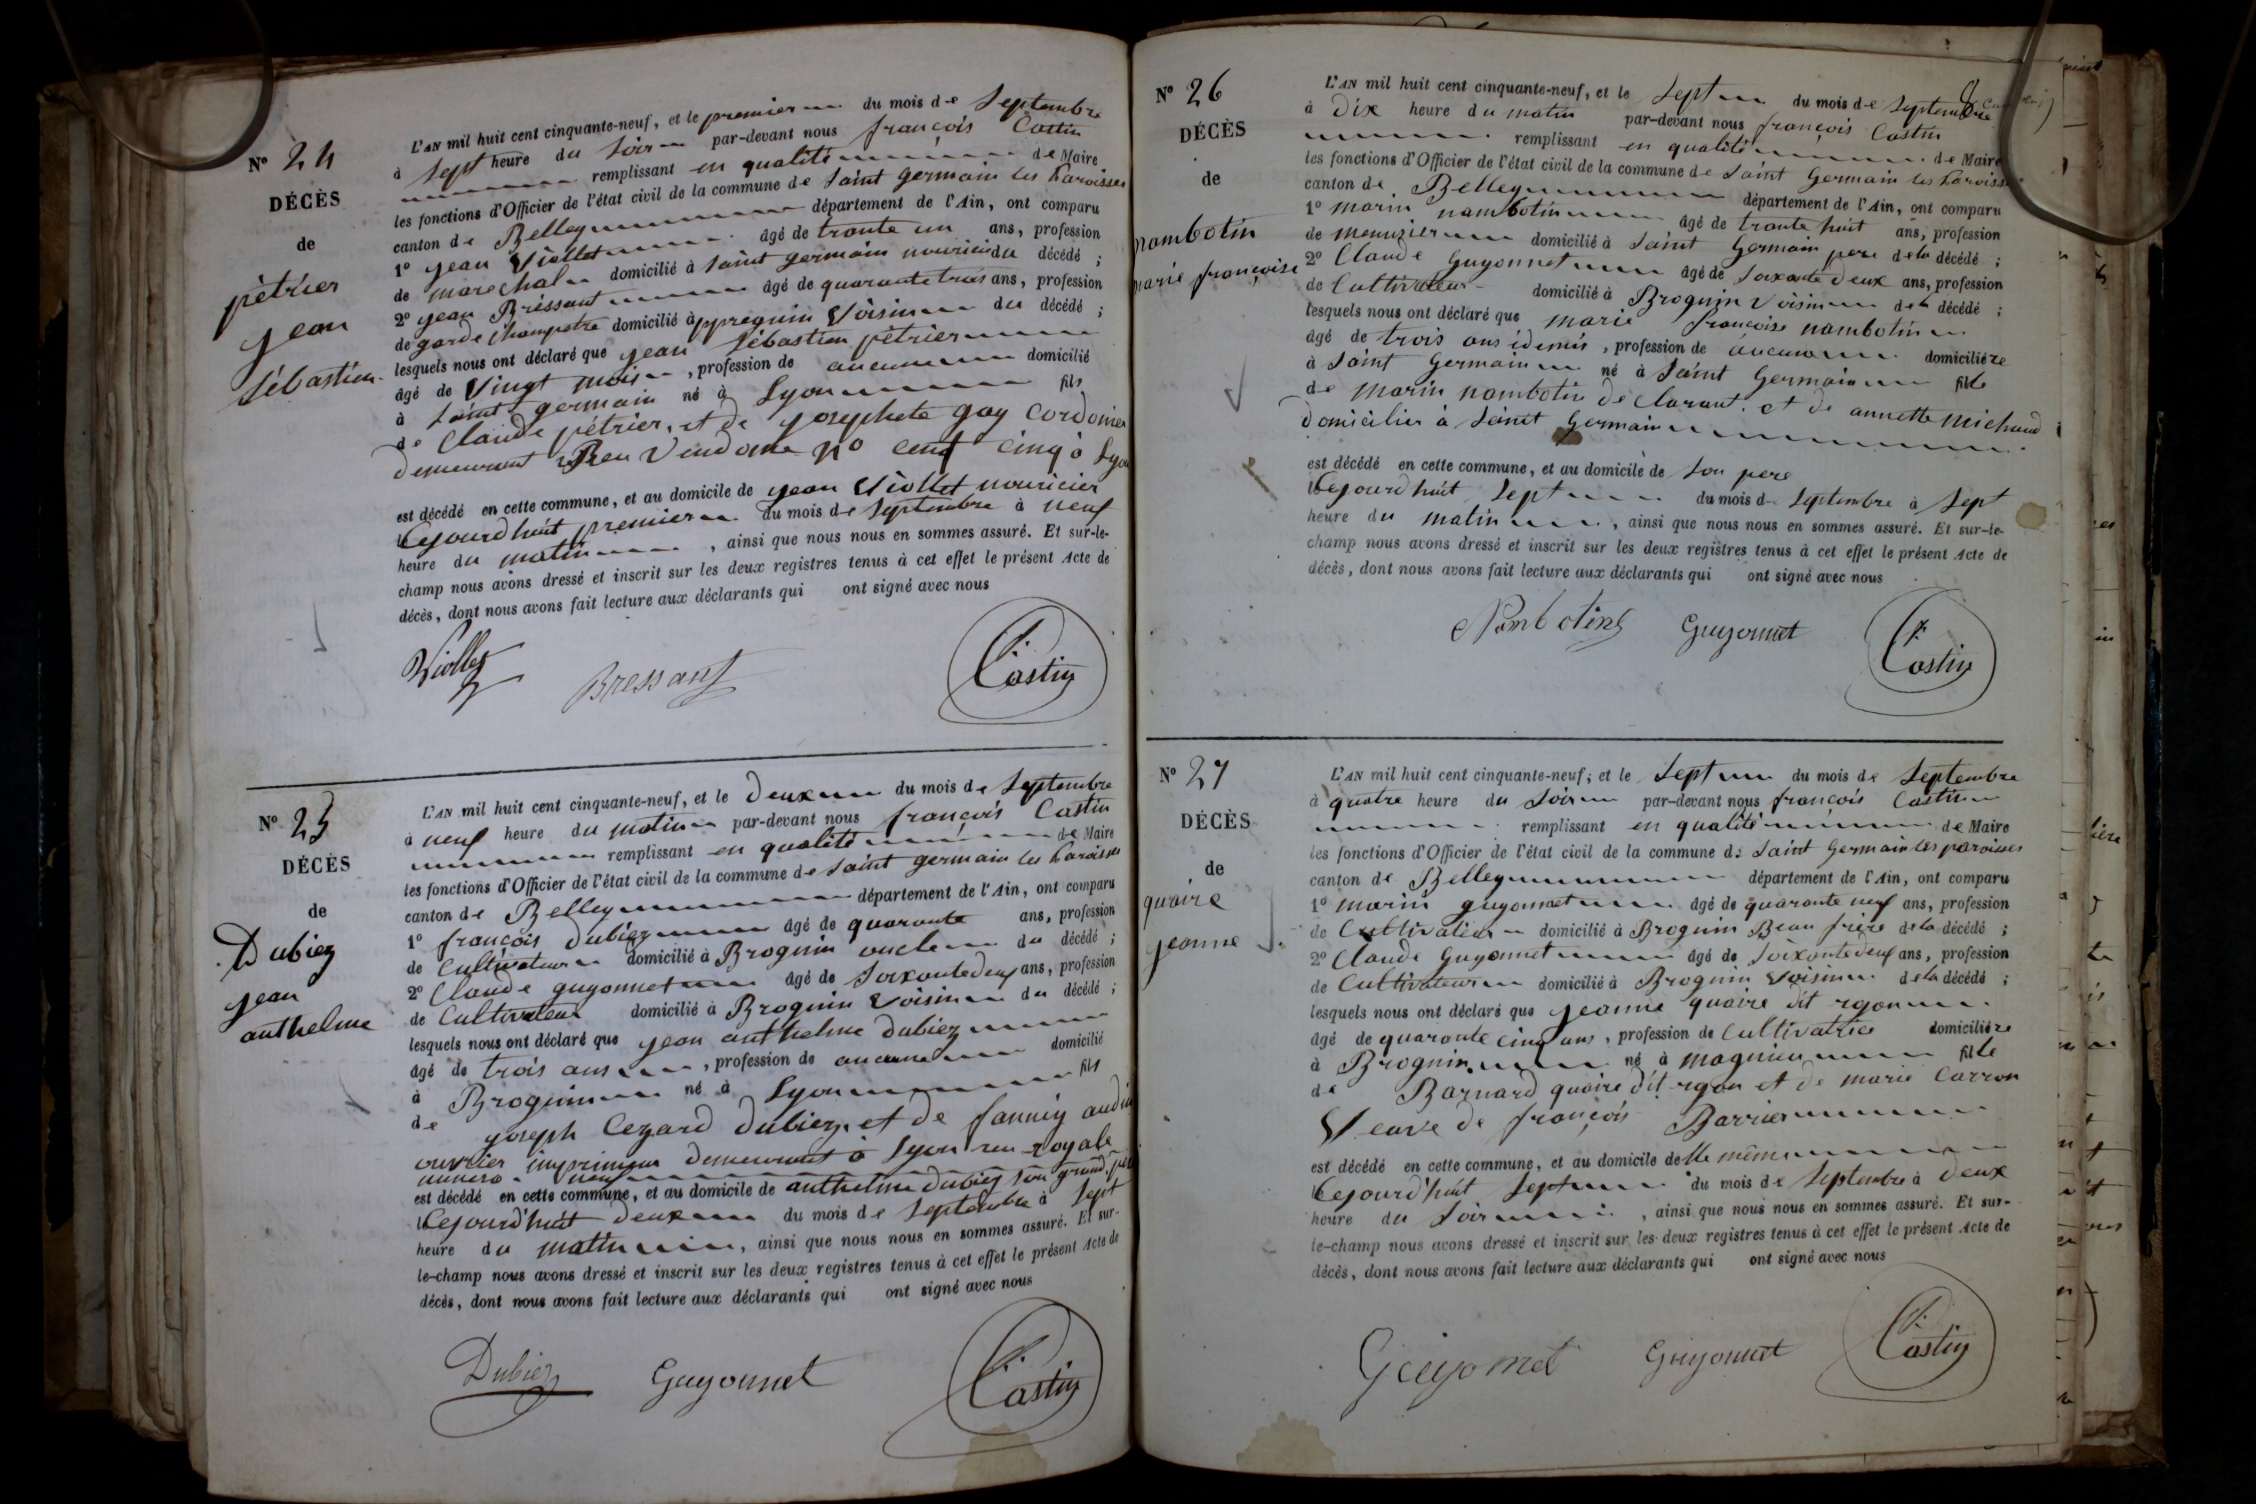 N° 24
DÉCÈS
de
pétrier
jean
sébastien
L'AN mil huit cent cinquante-neuf, et le premier du mois de Septembre
à sept heure du soir par-devant nous françois Castin
remplissant en qualité de Maire
les fonctions d'Officier de l'état civil de la commune de saint germain les paroisses
canton de Belley département de l'Ain, ont comparu
1° jean Viollet âgé de trante un ans, profession
de marechal domicilié à saint germain nouricier du décédé ;
2° jean Bressant âgé de quarante trois ans, profession
de garde champetre domicilié à ppregnin Voisin du décédé ;
lesquels nous ont déclaré que jean sébastien pétrier
âgé de Vingt mois , profession de aucune domicilié
à saint germain né à Lyon fils
de Claude pétrier, et de josephete gay Cordonier
demeurant Rue Vendome N° cent cinq à Lyon
est décédé en cette commune, et au domicile de jean Viollet nouricier
Cejourd'huit premier du mois de septembre à neuf
heure du matin , ainsi que nous nous en sommes assuré. Et sur-le-
champ nous avons dressé et inscrit sur les deux registres tenus à cet effet le présent Acte de
décès, dont nous avons fait lecture aux déclarants qui ont signé avec nous
Viollet Bressant Castin
N° 25
DÉCÈS
de
Dubiez
jean
anthelme
L'AN mil huit cent cinquante-neuf, et le deux du mois de Septembre
à neuf heure du matin par-devant nous françois Castin
remplissant en qualité de Maire
les fonctions d'Officier de l'état civil de la commune de saint germain les paroisses
canton de Belley département de l'Ain, ont comparu
1° françois dubiez âgé de quarante ans, profession
de Cultivateur domicilié à Brognin oncle du décédé ;
2° Claude guyonnet âgé de soixante deux ans, profession
de Cultivateur domicilié à Brognin Voisin du décédé ;
lesquels nous ont déclaré que jean anthelme dubiez
âgé de trois ans , profession de aucune domicilié
à Brognin né à Lyon fils
de joseph Cezard dubiez, et de fanniy
ouvrier imprimeur demeurant à Lyon rue royale
numero neuf
est décédé en cette commune, et au domicile de anthelme dubiez son grand père
Cejourd'huit deux du mois de septembre à sept
heure du matin , ainsi que nous nous en sommes assuré. Et sur-
le-champ nous avons dressé et inscrit sur les deux registres tenus à cet effet le présent Acte de
décès, dont nous avons fait lecture aux déclarants qui ont signé avec nous
Dubiez Guyonnet Castin
N° 26
DÉCÈS
de
nambotin
marie françoise
L'AN mil huit cent cinquante-neuf, et le sept du mois de Septembre
à dix heure du matin par-devant nous françois Castin
remplissant en qualité de Maire
les fonctions d'Officier de l'état civil de la commune de saint Germain les paroisses
canton de Belley département de l'Ain, ont comparu
1° marin nambotin âgé de trante huit ans, profession
de menuzier domicilié à saint Germain pere de la décédé ;
2° Claude Guyonnet âgé de soixante deux ans, profession
de Cultivateur domicilié à Brognin Voisin de la décédé ;
lesquels nous ont déclaré que marie françoise nambotin
âgé de trois ans édemis , profession de aucune domiciliére
à saint Germain né à saint Germain fille
de marin nambotin déclarant. et de annette michaud
domicilier à saint Germain
est décédé en cette commune, et au domicile de son pere
Cejourd'huit sept du mois de septembre à sept
heure du matin , ainsi que nous nous en sommes assuré. Et sur-le-
champ nous avons dressé et inscrit sur les deux registres tenus à cet effet le présent Acte de
décès, dont nous avons fait lecture aux déclarants qui ont signé avec nous
Nambotin Guyonnet Castin
N° 27
DÉCÈS
de
quaire
jeanne
L'AN mil huit cent cinquante-neuf, et le sept du mois de Septembre
à quatre heure du soir par-devant nous françois Castin
remplissant en qualité de Maire
les fonctions d'Officier de l'état civil de la commune de saint Germain les paroisses
canton de Belley département de l'Ain, ont comparu
1° marin guyonnet âgé de quarante neuf ans, profession
de Cultivateur domicilié à Brognin Beau frère de la décédé ;
2° Claude Guyonnet âgé de soixante deux ans, profession
de Cultivateur domicilié à Brognin Voisin de la décédé ;
lesquels nous ont déclaré que jeanne quaire dit rgon
âgé de quarante cinq ans , profession de Cultivatrice domiciliére
à Brognin né à magnieu fille
de Barnard quaire dit rgon et de marie Carron
Veuve de françois Barrier
est décédé en cette commune, et au domicile delle même
Cejourd'huit sept du mois de septembre à deux
heure du soir , ainsi que nous nous en sommes assuré. Et sur-
le-champ nous avons dressé et inscrit sur les deux registres tenus à cet effet le présent Acte de
décès, dont nous avons fait lecture aux déclarants qui ont signé avec nous
Guyonnet Guyonnet Castin